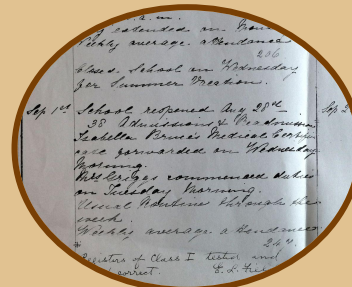 a.m.
extended on
Weekly average attendance
236
Closes School on Wednesday
for Summer Vacation.
Sep 1st School reopened Aug 28th
38 Admissions & Readmissions
Isabella Bruce Medical Certifi-
cate forwarded on Wednesday
Morning.
Mrs Griggs commenced duties
on Tuesday Morning.
Usual Routine through the
week.
Weekly average attendance
264.
Registers of Class I tested and
correct.
Sep 2